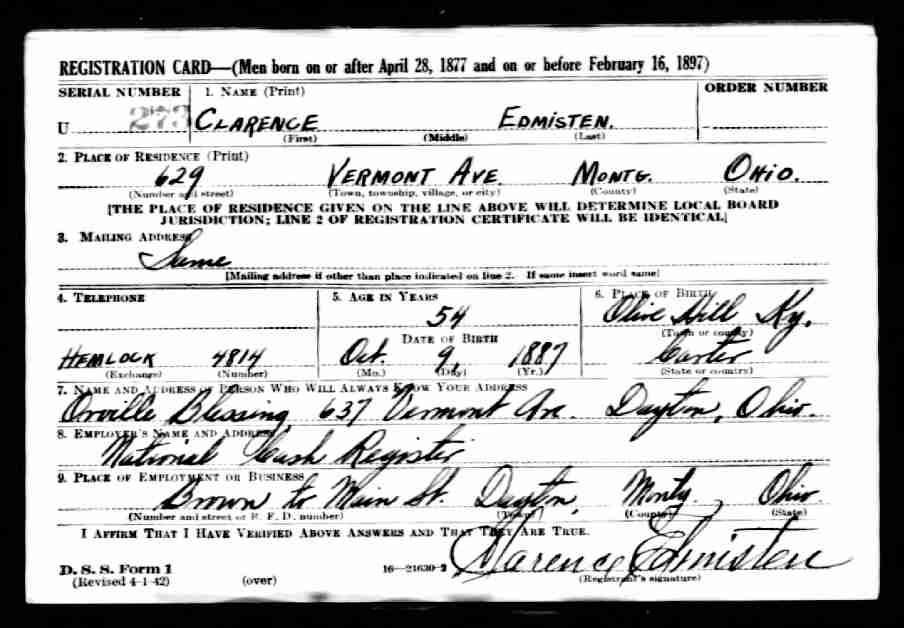 REGISTRATION CARD—(Men born on or after April 28, 1877 and on or before February 16, 1897)
SERIAL NUMBER 1. NAME (Print) ORDER NUMBER
U 273 CLARENCE EDMISTEN.
(First) (Middle) (Last)
2. PLACE OF RESIDENCE (Print)
629 VERMONT AVE. MONTG. OHIO.
(Number and street) (Town, township, village, or city) (County) (State)
[THE PLACE OF RESIDENCE GIVEN ON THE LINE ABOVE WILL DETERMINE LOCAL BOARD
JURISDICTION; LINE 2 OF REGISTRATION CERTIFICATE WILL BE IDENTICAL]
3. MAILING ADDRESS
Same
[Mailing address if other than place indicated on line 2. If same insert word same]
4. TELEPHONE 5. AGE IN YEARS 6. PLACE OF BIRTH
54 Olive Hill Ky.
DATE OF BIRTH (Town or county)
HEMLOCK 4814 Oct. 9, 1887 Carter
(Exchange) (Number) (Mo.) (Day) (Yr.) (State or country)
7. NAME AND ADDRESS OF PERSON WHO WILL ALWAYS KNOW YOUR ADDRESS
Orville Blessing 637 Vermont Ave. Dayton, Ohio.
8. EMPLOYER'S NAME AND ADDRESS
National Cash Register
9. PLACE OF EMPLOYMENT OR BUSINESS
Brown to Main St. Dayton, Montg Ohio
(Number and street or R. F. D. number) (Town) (County) (State)
I AFFIRM THAT I HAVE VERIFIED ABOVE ANSWERS AND THAT THEY ARE TRUE.
Clarence Edmisten
D. S. S. Form 1
(Revised 4-1-42) (over) 16—21630-2 (Registrant's signature)